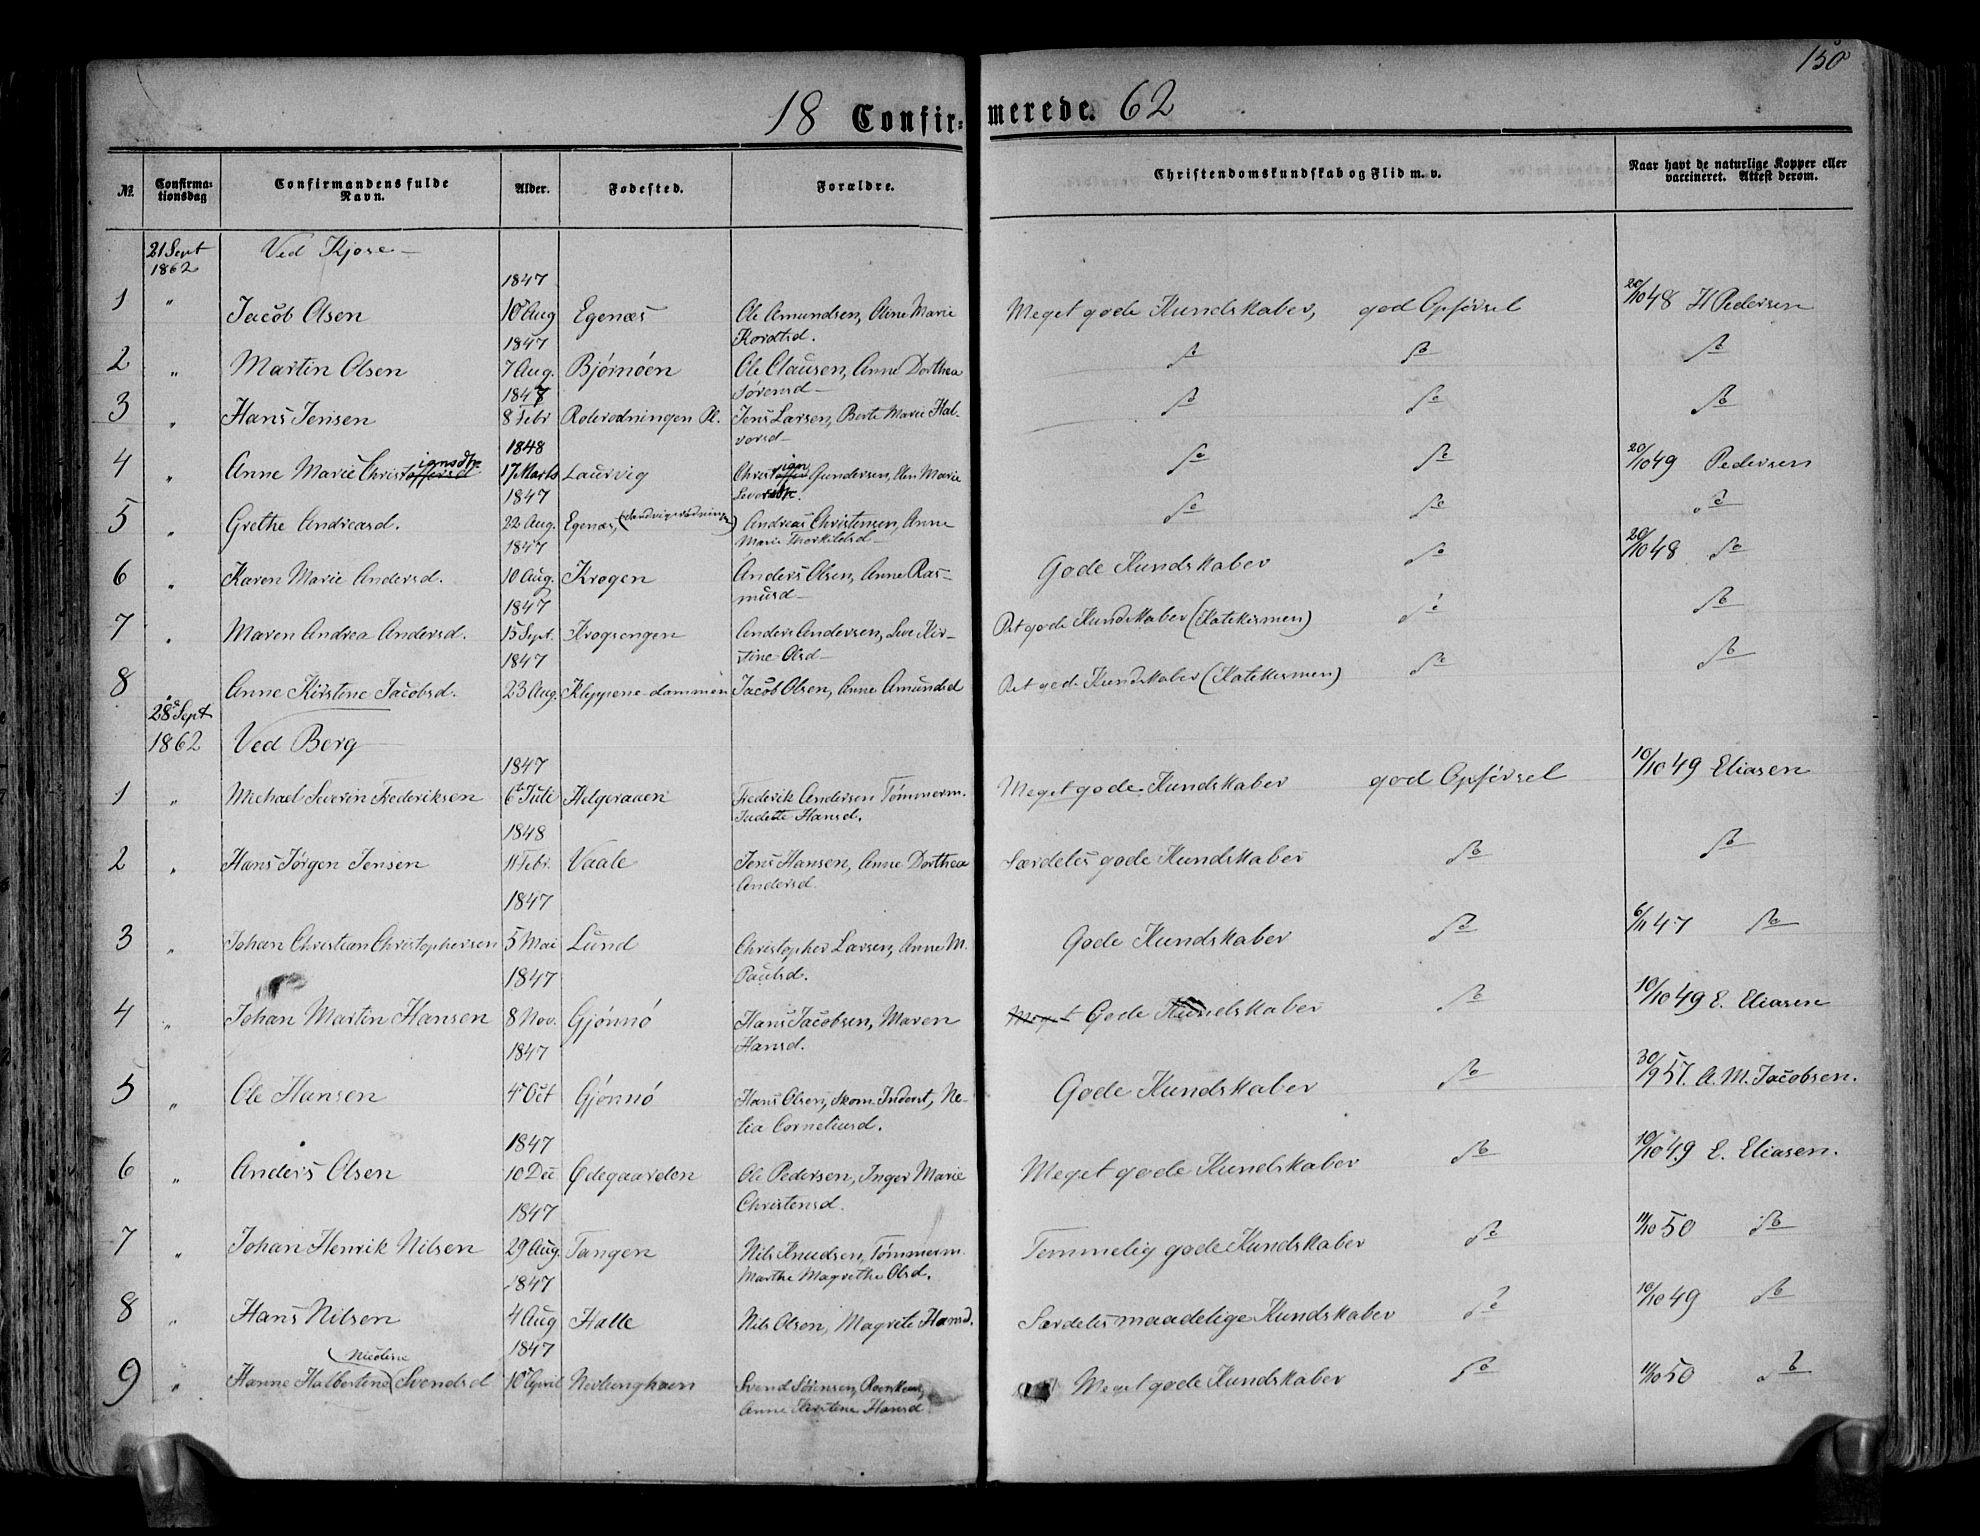 150
18 Confirmerede. 62
№ Confirmationsdag Confirmandens fulde Navn. Alder. Fødested. Forældre. Christendomskundskab og Flid m. v. Naar havt de naturlige Kopper eller vaccineret. Attest derom.
21 Sept 1862 Ved Kjose
1 " Jacob Olsen 1847 10 Aug Egenæs Ole Amundsen, Oline Marie Meget gode Kundskaber, god Opførsel 20/10 48 H Pedersen
2 " Martin Olsen 1847 7 Aug. Bjørnøen Ole Clausen, Anne Dorthea Sørensd do do do
3 " Hans Jensen 1847 8 Febr Pl. Jens Larsen, Berte Marie Halvorsd do do do
4 " Anne Marie Christiansdtr 1848 17 Marts Laurvig Christian Gundersen, Marie do do 20/10 49 Pedersen
5 " Grethe Andreasd. 1847 22 Aug. Egenæs, Andreas Christensen, Anne Marie Thorkildsd do do do
6 " Karen Marie Andersd. 1847 10 Aug. Krogen Anders Olsen, Anne Rasmusd Gode Kundskaber do 20/10 48 do
7 " Maren Andrea Andersd. 1847 15 Sept. Krogsengen Anders Andersen, Kirstine Olsd Ret gode Kundskaber (Katekismen) do do
8 " Anne Kirstene Jacobsd. 1847 23 Aug. Kleppenedammen Jacob Olsen, Anne Amundsd Ret gode Kundskaber (Katekismen) do do
28 Sept 1862 Ved Berg
1 " Michael Severin Frederiksen 1847 6 Juli Helgeraaen Frederik Andersen Tømmerm. Hansd. Meget gode Kundskaber god Opførsel 10/10 49 Eliasen
2 " Hans Jørgen Jensen 1848 11 Febr. Vaale Jens Hansen, Anne Dorthea Andersd. Særdeles gode Kundskaber do do
3 " Johan Christian Christophersen 1847 5 Mai Lund Christopher Larsen, Anne M. Paulsd. Gode Kundskaber do 6/11 47 do
4 " Johan Martin Hansen 1847 8 Nov. Gjønnø Hans Jacobsen, Maren Hansd. Meget Gode Kundskaber do 10/10 49 E. Eliasen
5 " Ole Hansen 1847 4 Oct Gjønnø Hans Olsen, Skom. Inderst, Nelia Corneliusd. Gode Kundskaber do 30/9 57. A. M. Jacobsen.
6 " Anders Olsen 1847 10 Dec Ødegaarden Ole Pedersen, Inger Marie Christensd. Meget gode Kundskaber do 10/10 49 E. Eliasen.
7 " Johan Henrik Nilsen 1847 29 Aug Tangen Nils Knudsen, Tømmerm. Marthe Magrethe Olsd. Temmelig gode Kundskaber do 11/10 50 do
8 " Hans Nilsen 1847 4 Aug Halle Nils Olsen, Magrete Hansd. Særdeles maadelige Kundskaber do 10/10 49 do
9 " Hanne Halbertine Nicoline Svendsd 1847 10 April Nevlunghavn Svend Sørensen, Anne Kirstine Hansd. Meget gode Kundskaber do 11/10 50 do